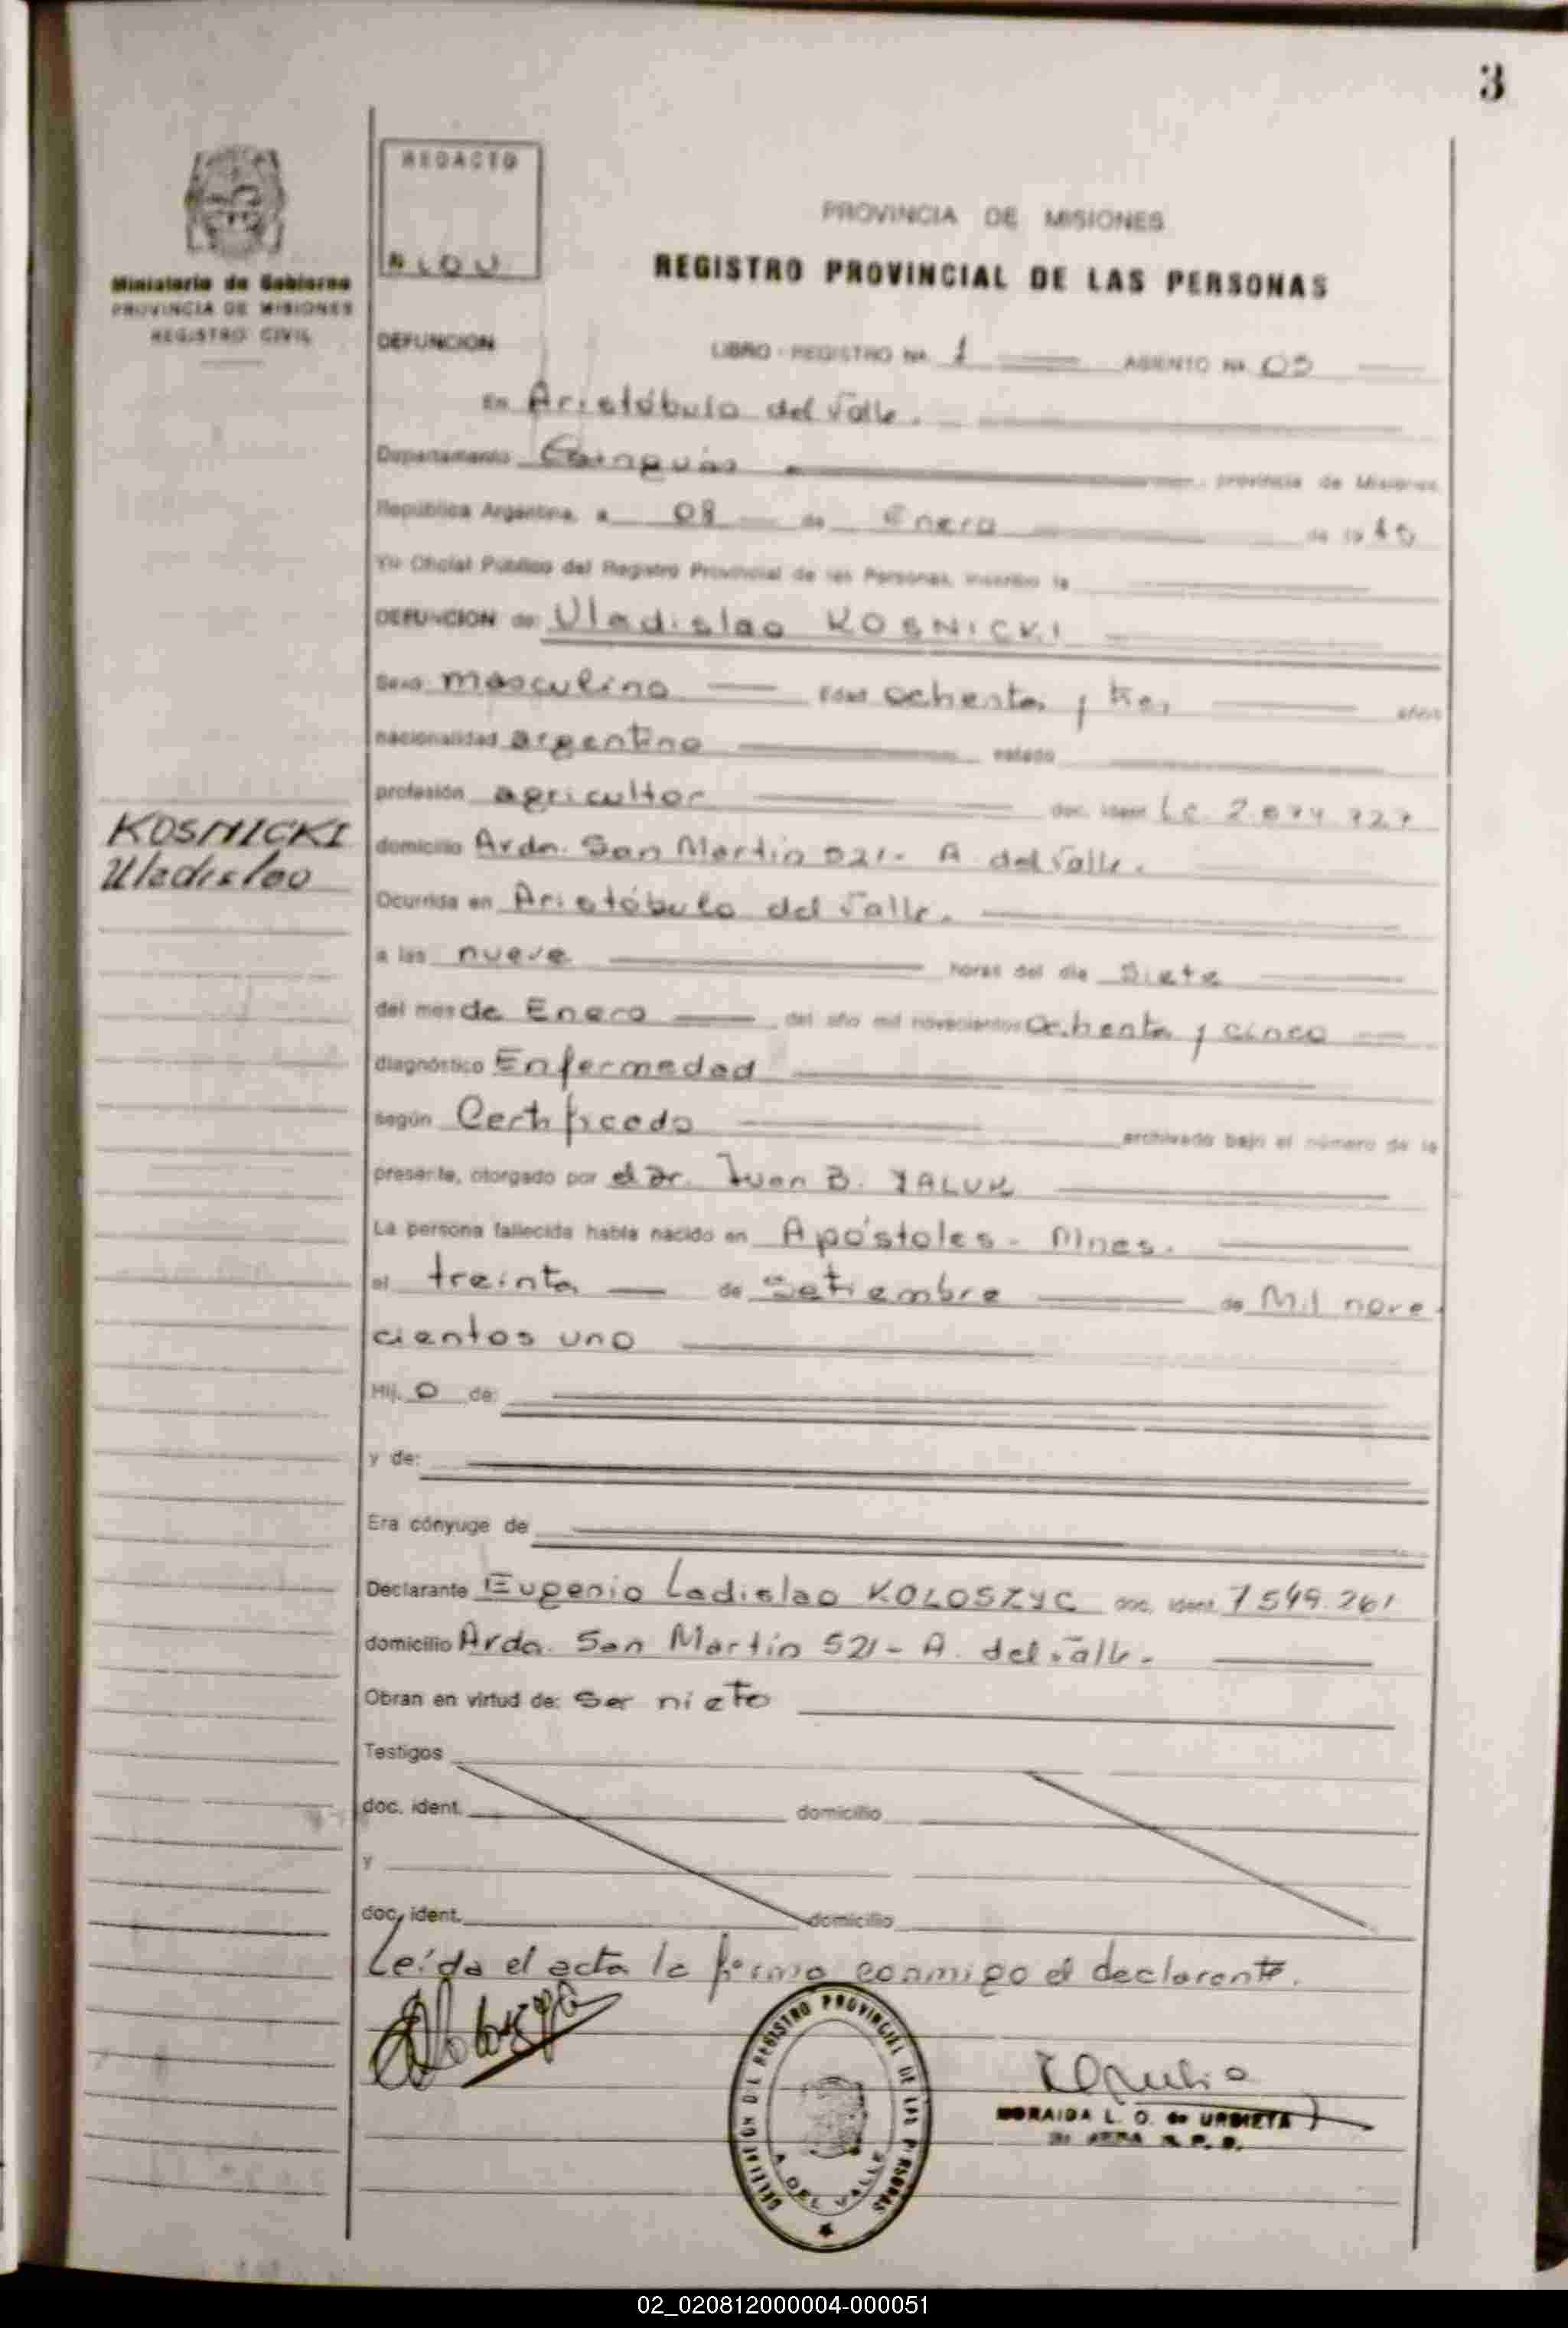 3
REDACTO
Ministerio de Gobierno
PROVINCIA DE MISIONES
REGISTRO CIVIL
PROVINCIA DE MISIONES
REGISTRO PROVINCIAL DE LAS PERSONAS
DEFUNCION
LIBRO - REGISTRO Nº 1 ASIENTO Nº 03
En Aristóbulo del Valle.
Departamento Cainguás provincia de Misiones,
República Argentina, a 08 de Enero de 19
Yo Oficial Público del Registro Provincial de las Personas, inscribo la
DEFUNCION de: Uladislao KOSNICKI
Sexo masculino Edad ochenta y tres años
nacionalidad argentino estado
profesión agricultor doc. ident. 727
KOSNICKI
Uladislao
domicilio Avda. San Martín 521- A. del Valle.
Ocurrida en Aristóbulo del Valle.
a las nueve horas del día siete
del mes de Enero del año mil novecientos ochenta y cinco
diagnóstico Enfermedad
según Certificado archivado bajo el número de la
presente, otorgado por el Dr. Juan B. YALUK
La persona fallecida había nacido en Apóstoles - Mnes.
el treinta de Setiembre de Mil nove-
cientos uno
Hij o de:
y de:
Era cónyuge de
Declarante Eugenio Ladislao KOLOSZYC doc. ident. 7.549.261
domicilio Avda. San Martín 521- A. del Valle.
Obran en virtud de: ser nieto
Testigos
doc. ident. domicilio
y
doc. ident. domicilio
Leída el acta la firma conmigo el declarante.
DELEGACION DEL REGISTRO PROVINCIAL DE LAS PERSONAS
A. DEL VALLE
L. O. de URBIETA
R. P. P.
02_020812000004-000051